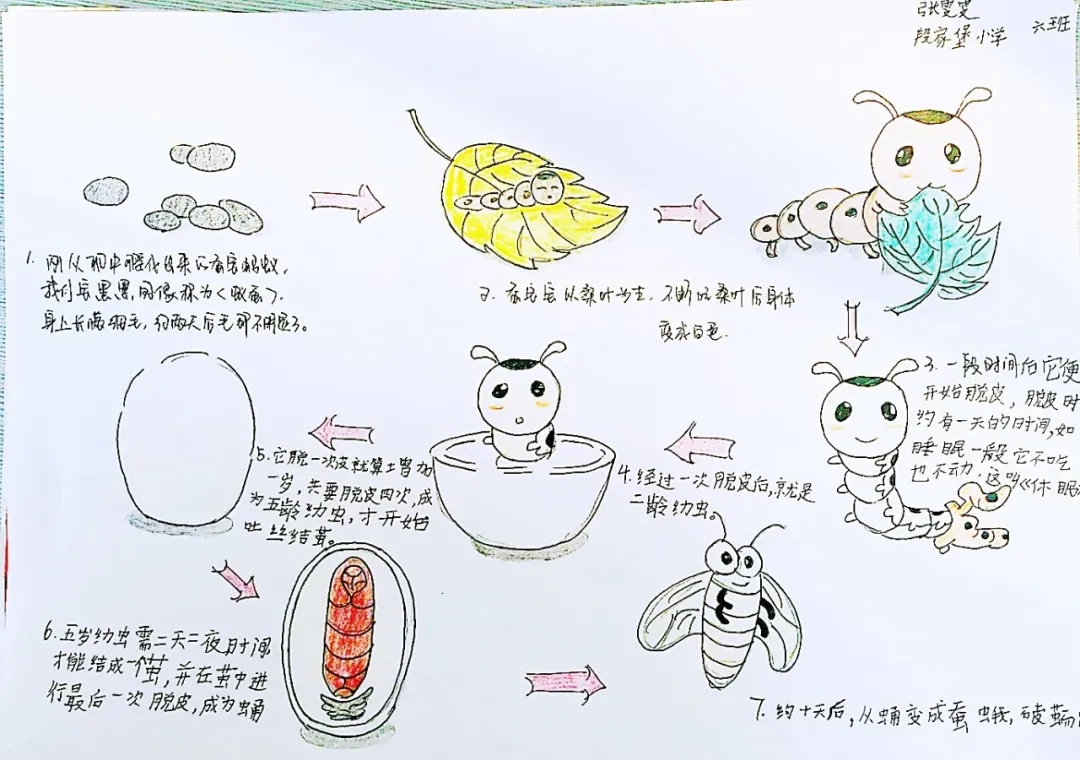 张雯雯
段家堡小学 六班
1. 刚从卵中孵化出来的蚕宝蚂蚁,
黑黑,
身上长满细毛, 约两天后毛即不明显了。
2. 蚕宝宝以桑叶为生. 不断吃桑叶后身体
变成白色.
3. 一段时间后它便
开始脱皮, 脱皮时
约有一天的时间, 如
睡眠一般它不吃
也不动. 这叫《休眠
4. 经过一次脱皮后, 就是
二龄幼虫。
5. 它脱一次皮就算土曾加
一岁, 共要脱皮四次, 成
为五龄幼虫, 才开始
吐丝结茧。
6. 五岁幼虫需二天二夜时间
才能结成一个茧, 并在茧中进
行最后一次脱皮, 成为蛹
7. 约十天后, 从蛹变成蚕蛾, 破茧